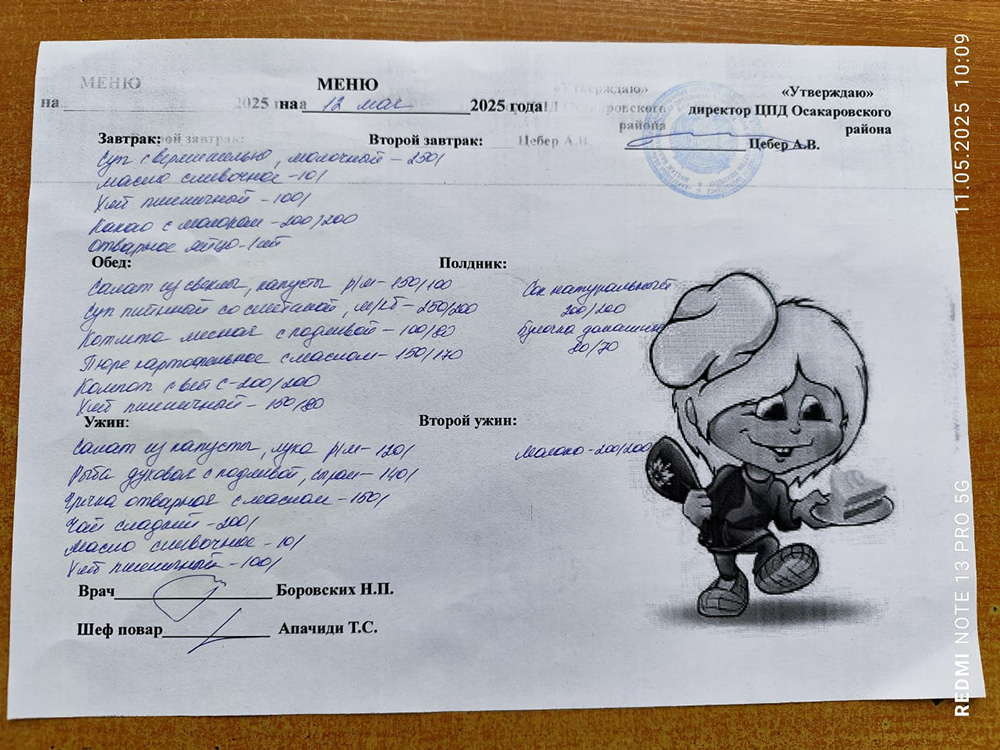 МЕНЮ
МЕНЮ
«Утверждаю»
на 2025 г
на 12 мая 2025 года
директор ЦПД Осакаровского
района
Цебер А.В.
Завтрак:
Второй завтрак:
Суп с вермишелью, молочный - 250/
Масло сливочное - 10/
Хлеб пшеничный - 100/
Какао с молоком - 200/200
Отварное яйцо - 1 шт
Обед:
Полдник:
Салат из свеклы, капусты р/м - 150/100
Сок натуральный
200/200
Суп питный со сметаной, м/кб - 250/200
Булочка домашняя
80/70
Котлета мясная с подливой - 100/80
Пюре картофельное с маслом - 150/170
Компот с вит С - 200/200
Хлеб пшеничный - 150/80
Ужин:
Второй ужин:
Салат из капусты, лука р/м - 120/
Молоко - 200/200
Рыба духовая с подливой, - 140/
Гречка отварная с маслом - 150/
Чай сладкий - 200/
Масло сливочное - 10/
Хлеб пшеничный - 100/
Врач Боровских Н.П.
Шеф повар Апачиди Т.С.
REDMI NOTE 13 PRO 5G
11.05.2025 10:09